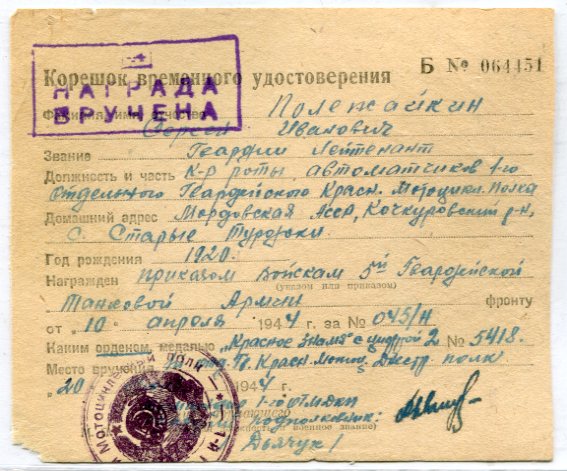 НАГРАДА
ВРУЧЕНА
Корешок временного удостоверения Б № 064451
Фамилия, имя, отчество Полежайкин
Сергей Иванович
Звание Гвардии Лейтенант
Должность и часть К-р роты автоматчиков 1-го
Отдельного Гвардейского Красн. Мотоцикл. Полка
Домашний адрес Мордовская Асср, Кочкуровский р-н,
с. Старые Турдаки
Год рождения 1920.
Награжден приказом Войскам 5й Гвардейской
(указом или приказом)
Танковой Армии фронту
от "10" апреля 1944 г. за № 045/Н
Каким орденом, медалью "Красное Знамя" с цифрой 2 № 5418.
Место вручения Гв. Красн. полк
"20" 194 г.
подполковник:
Дьячук/